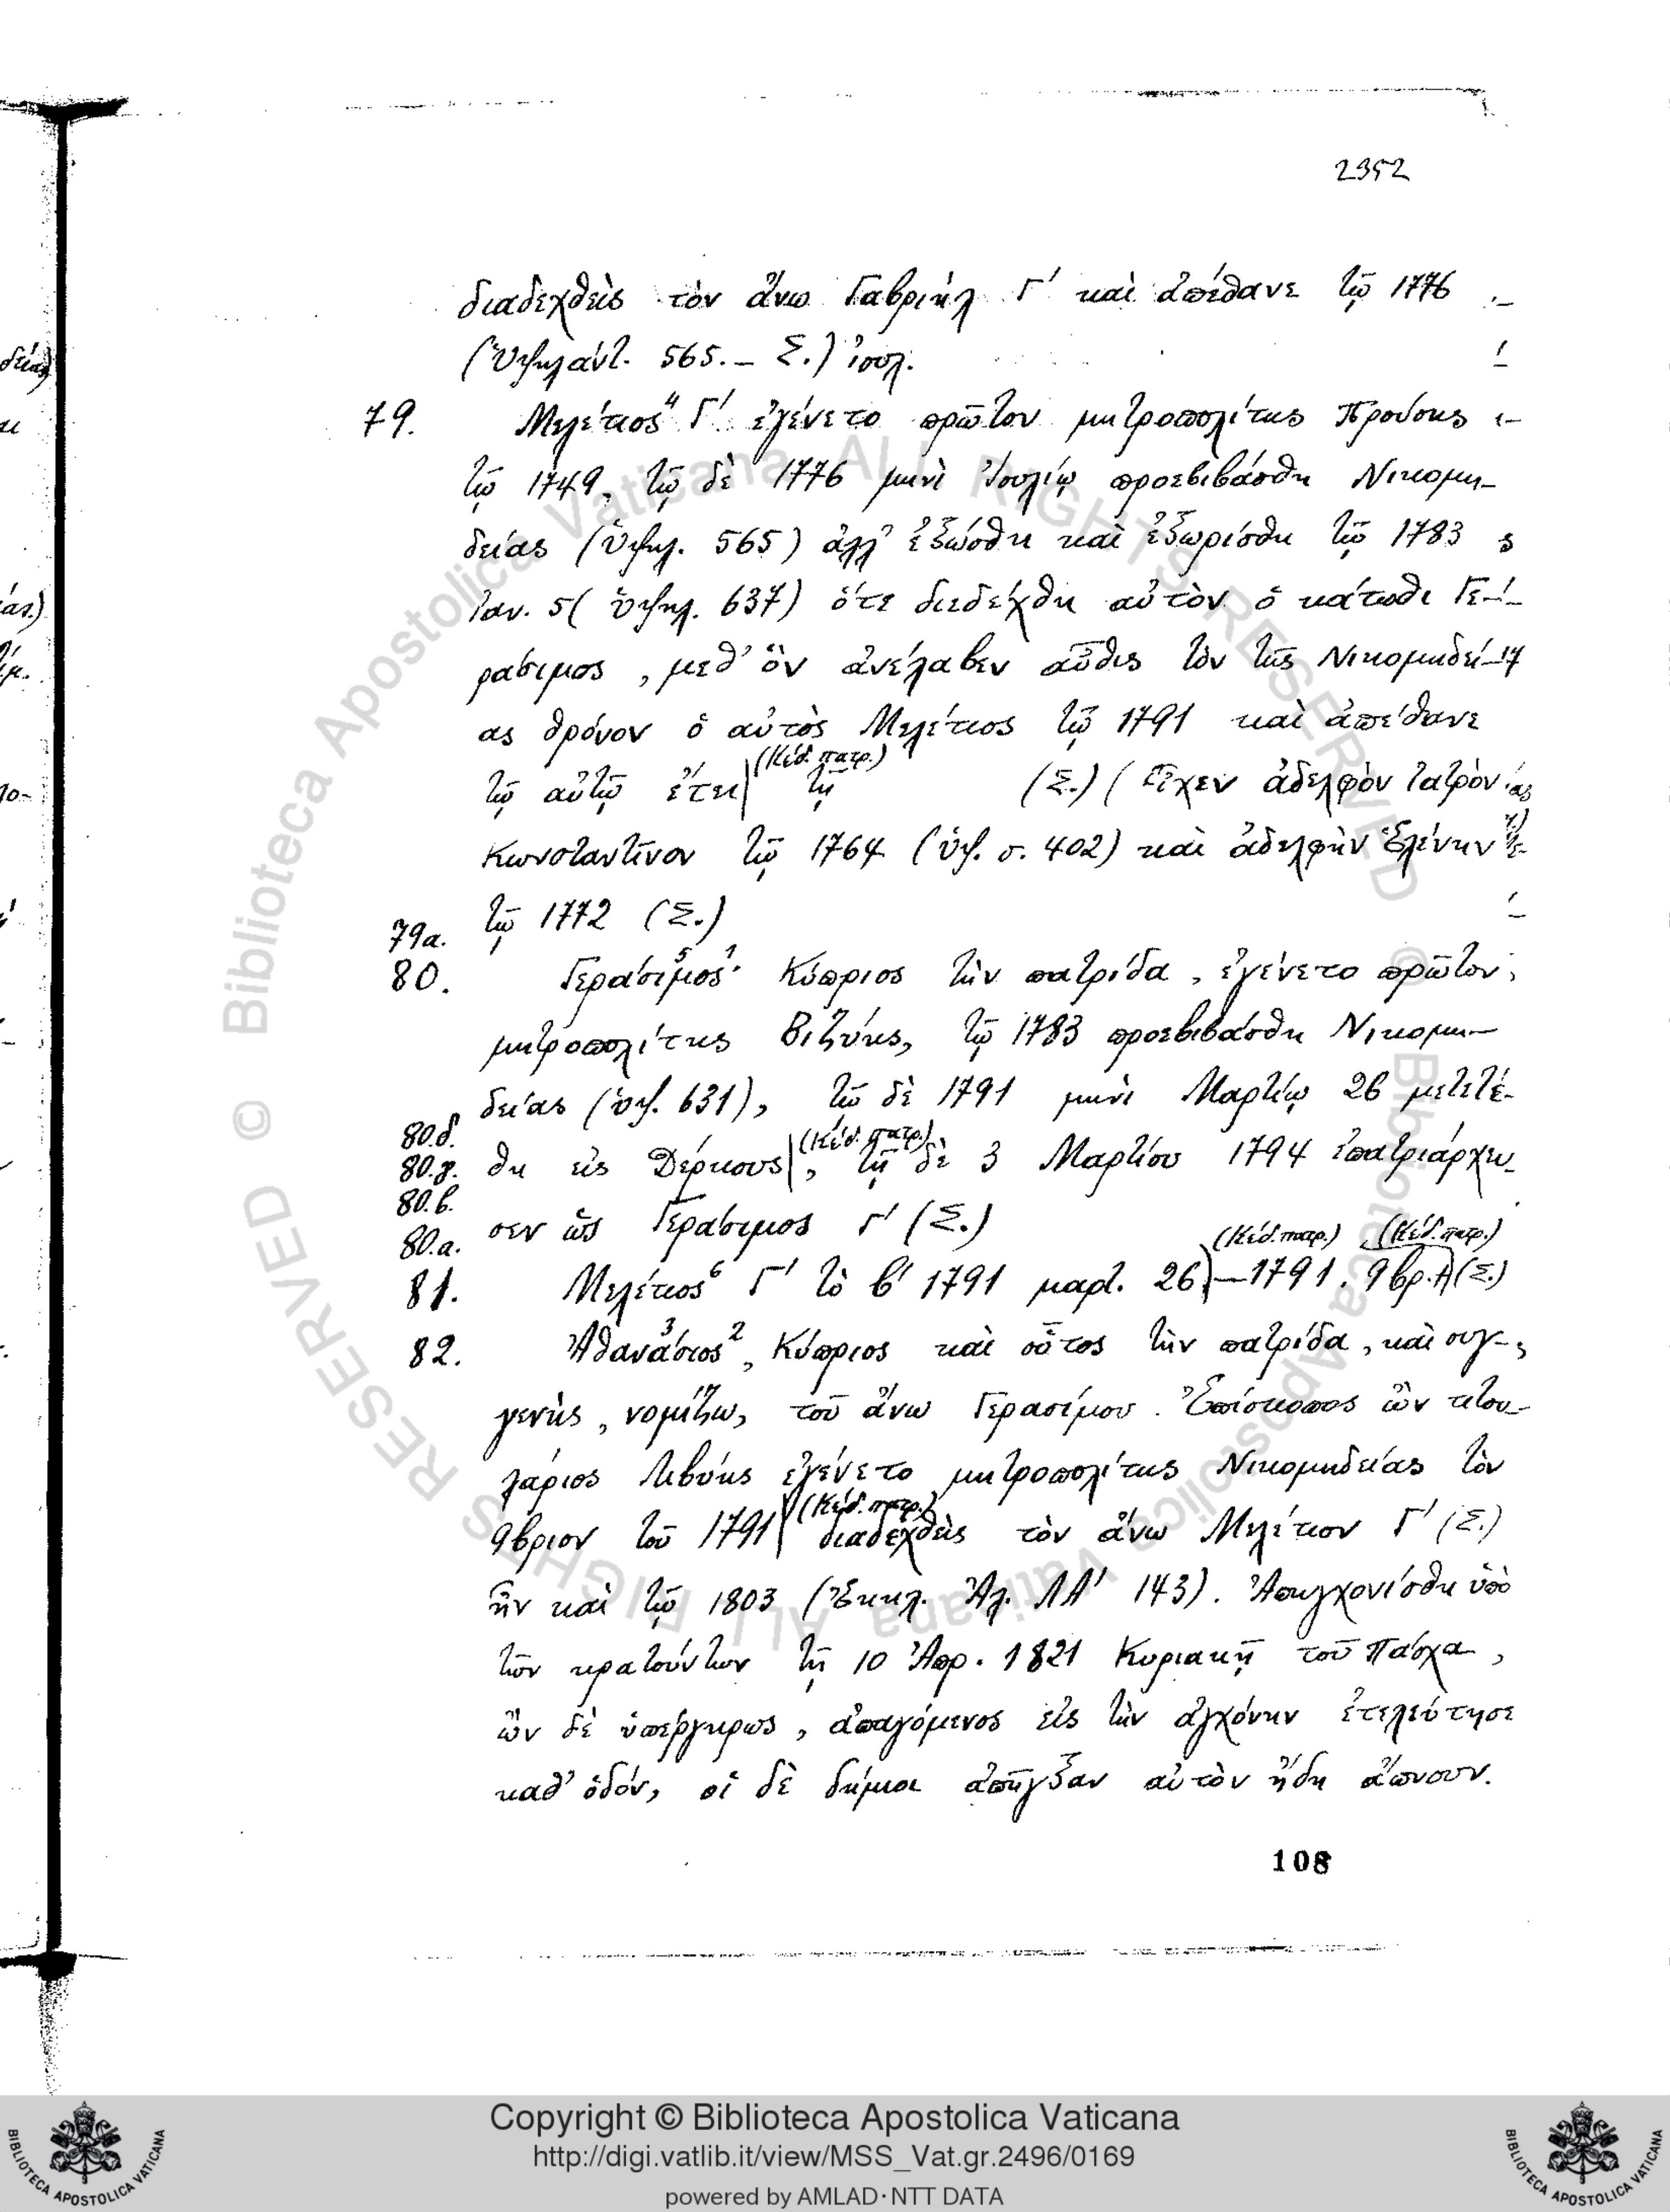 2352
διαδεχθεὶς τὸν ἄνω Γαβριὴλ Γ′ καὶ ἀπέθανε τῷ 1776
(Ὑψηλάντ. 565.– Σ.) ἰουλ.
79. Μελέτιος⁴ Γ′ ἐγένετο πρῶτον μητροπολίτης Προύσης
τῷ 1749, τῷ δὲ 1776 μηνὶ Ἰουλίῳ προεβιβάσθη Νικομη-
δείας (ὑψηλ. 565) ἀλλ' ἐξώσθη καὶ ἐξωρίσθη τῷ 1783
Ἰαν. 5 (ὑψηλ. 637) ὅτε διεδέχθη αὐτὸν ὁ κάτωθι Γε-
ράσιμος, μεθ' ὃν ἀνέλαβεν αὖθις τὸν τῆς Νικομηδεί-
ας θρόνον ὁ αὐτὸς Μελέτιος τῷ 1791 καὶ ἀπέθανε
τῷ αὐτῷ ἔτει (Κώδ. πατρ.) τῇ (Σ.) (Εἶχεν ἀδελφὸν ἰατρὸν
Κωνσταντῖνον τῷ 1764 (ὑψ. σ. 402) καὶ ἀδελφὴν Ἑλένην
τῷ 1772 (Σ.)
79α.
80. Γεράσιμος⁵ ¹· Κύπριος τὴν πατρίδα, ἐγένετο πρῶτον
μητροπολίτης Βιζύης, τῷ 1783 προεβιβάσθη Νικομη-
δείας (ὑψ. 631), τῷ δὲ 1791 μηνὶ Μαρτίῳ 26 μετετέ-
80.δ.
80.γ. θη εἰς Δέρκους (Κώδ. πατρ.), τῇ δὲ 3 Μαρτίου 1794 ἐπατριάρχευ-
80.β.
80.α. σεν ὡς Γεράσιμος Γ′ (Σ.)
81. Μελέτιος⁶ Γ′ τὸ β′ 1791 μαρτ. 26 (Κώδ. πατρ.) – 1791. 9βρ. (Κώδ. πατρ.) (Σ.)
82. Ἀθανάσιος³ ², Κύπριος καὶ οὗτος τὴν πατρίδα, καὶ συγ-
γενής, νομίζω, τοῦ ἄνω Γερασίμου. Ἐπίσκοπος ὢν τιτου-
λάριος Λιβύης ἐγένετο μητροπολίτης Νικομηδείας τὸν
9βριον τοῦ 1791 (Κώδ. πατρ.) διαδεχθεὶς τὸν ἄνω Μελέτιον Γ′ (Σ.)
ἦν καὶ τῷ 1803 (Ἐκκλ. Ἀλ. ΛΑ′ 143). Ἀπηγχονίσθη ὑπὸ
τῶν κρατούντων τῇ 10 Ἀπρ. 1821 Κυριακῇ τοῦ Πάσχα,
ὢν δὲ ὑπέργηρως, ἀπαγόμενος εἰς τὴν ἀγχόνην ἐτελεύτησε
καθ' ὁδόν, οἱ δὲ δήμιοι ἀπῆγξαν αὐτὸν ἤδη ἄπνουν.
108
© Biblioteca Apostolica Vaticana ALL RIGHTS RESERVED
© Biblioteca Apostolica Vaticana ALL RIGHTS RESERVED
Copyright © Biblioteca Apostolica Vaticana
http://digi.vatlib.it/view/MSS_Vat.gr.2496/0169
powered by AMLAD·NTT DATA
BIBLIOTECA APOSTOLICA VATICANA
BIBLIOTECA APOSTOLICA VATICANA